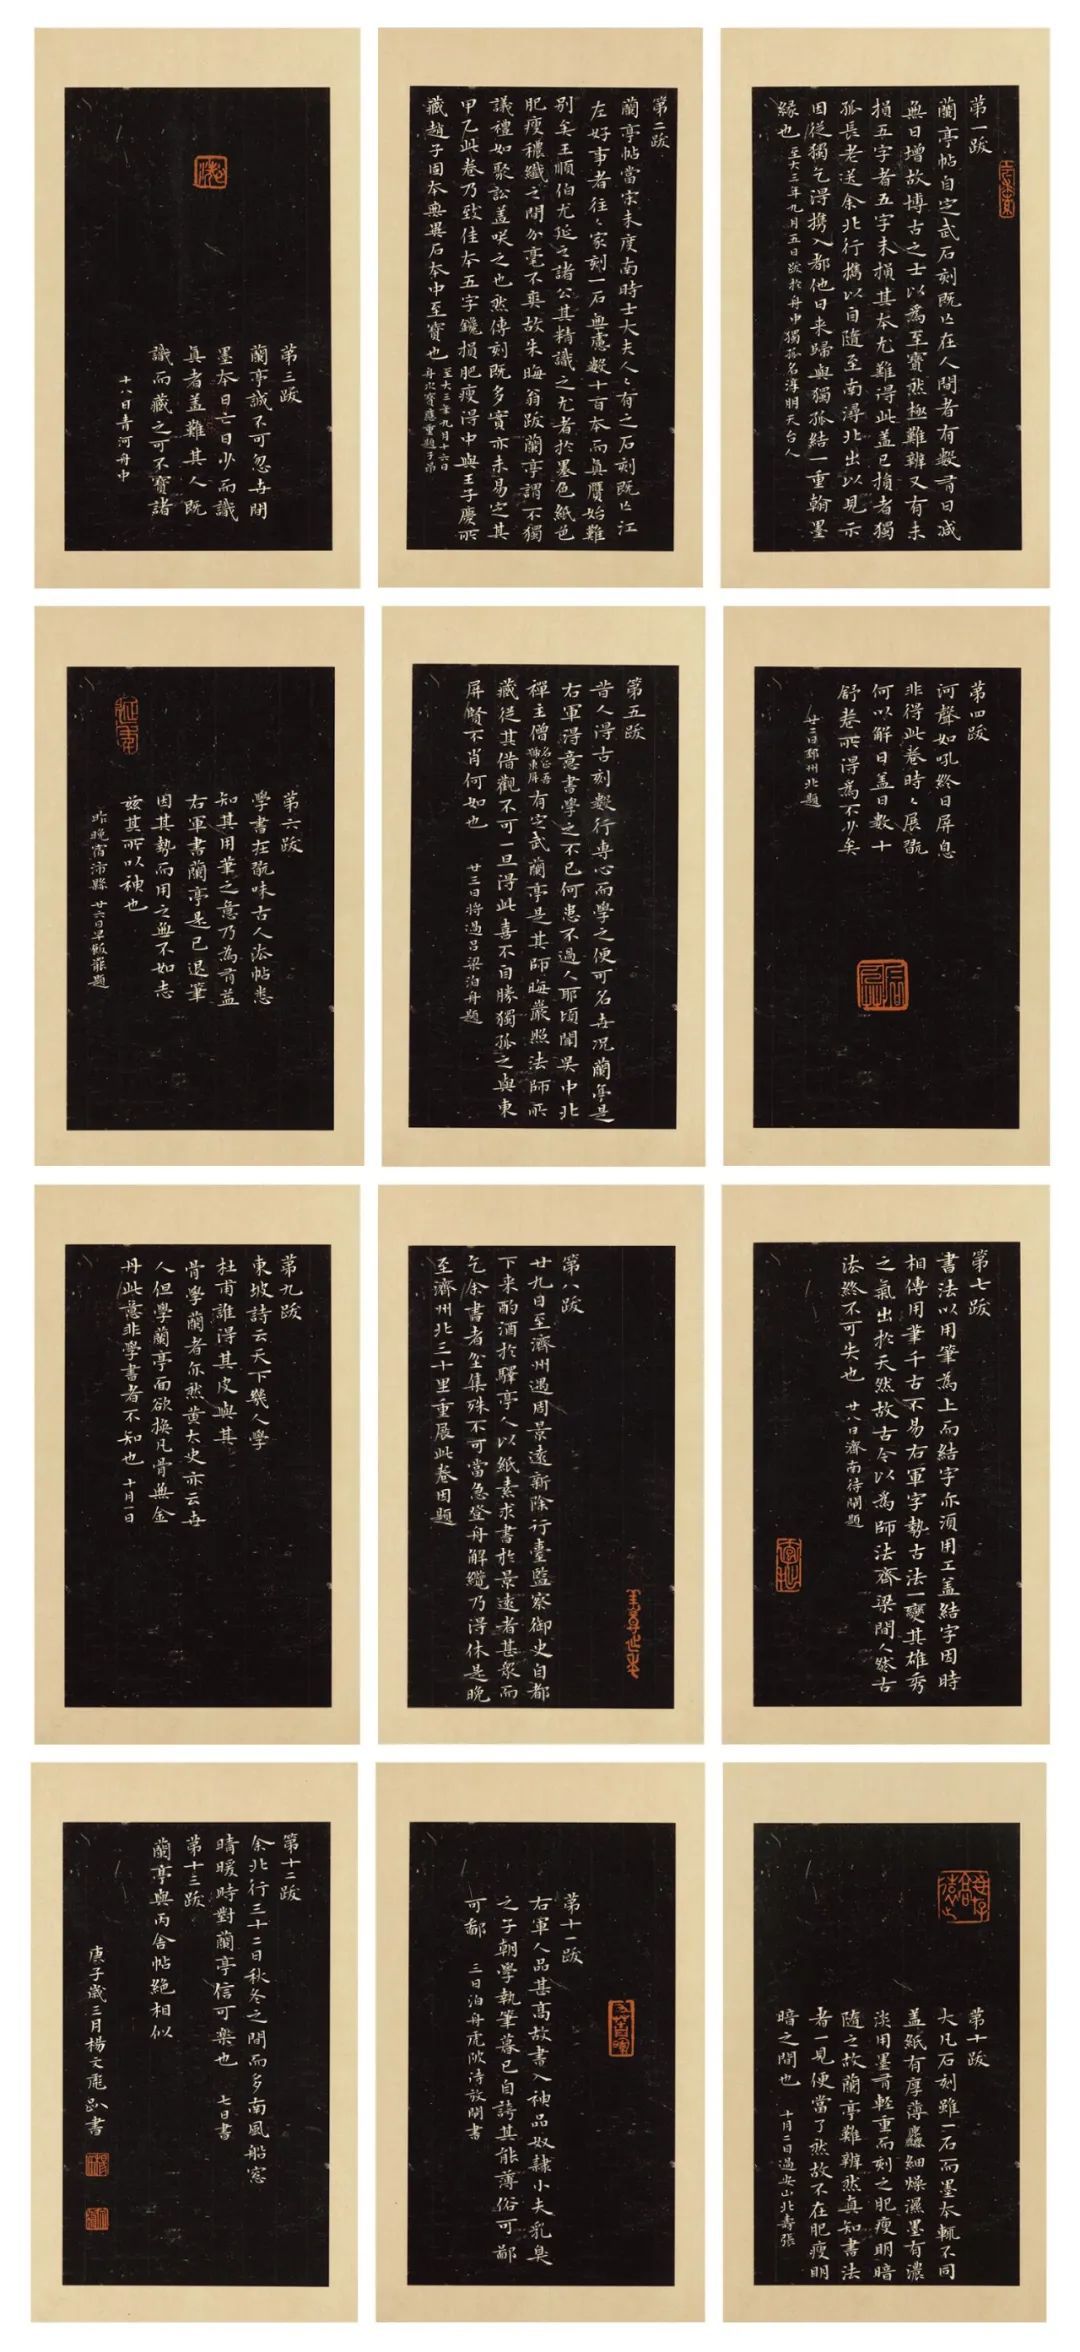 第一跋
蘭亭帖自定武石刻既亡在人間者有數有日減
無日增故博古之士以為至寶然極難辨又有未
損五字者五字未損其本尤難得此盖已損者獨
孤長老送余北行攜以自隨至南潯北出以見示
因從獨乞得携入都他日来歸與獨孤結一重翰墨
緣也 至大三年九月五日跋於舟中獨孤名淳明天台人
第二跋
蘭亭帖當宋未度南時士大夫人人有之石刻既亡江
左好事者往往家刻一石無慮數十百本而真贋始難
別矣王順伯尤延之諸公其精識之尤者於墨色紙色
肥瘦穠纖之間分毫不爽故朱晦翁跋蘭亭謂不獨
議禮如聚訟盖咲之也然傳刻既多實亦未易定其
甲乙此卷乃致佳本五字鑱損肥瘦得中與王子慶所
藏趙子固本無異石本中至寶也 至大三年九月十六日
舟次寶應重題子昂
第三跋
蘭亭誠不可忽世間
墨本日亡日少而識
真者盖難其人既
識而藏之可不寶諸
十八日清河舟中
第四跋
河聲如吼終日屏息
非得此卷時時展翫
何以解日盖日數十
舒卷所得為不少矣
廿二日邳州北題
第五跋
昔人得古刻數行專心而學之便可名世况蘭亭是
右軍得意書學之不已何患不過人耶頃聞吳中北
禪主僧名正吾號東屏有定武蘭亭是其師晦巖照法師所
藏從其借觀不可一旦得此喜不自勝獨孤之與東
屏賢不肖何如也 廿三日將過呂梁泊舟題
第六跋
學書在翫味古人法帖悉
知其用筆之意乃為有益
右軍書蘭亭是已退筆
因其勢而用之無不如志
兹其所以神也
昨晚宿沛縣 廿六日早飯罷題
第七跋
書法以用筆為上而結字亦須用工盖結字因時
相傳用筆千古不易右軍字勢古法一變其雄秀
之氣出於天然故古今以為師法齊梁間人然古
法終不可失也 廿八日濟南待閘題
第八跋
廿九日至濟州遇周景遠新除行臺監察御史自都
下来酌酒於驛亭人以紙素求書於景遠者甚衆而
乞余書者坌集殊不可當急登舟解纜乃得休是晚
至濟州北三十里重展此卷因題
第九跋
東坡詩云天下幾人學
杜甫誰得其皮與其
骨學蘭者亦然黄大史亦云世
人但學蘭亭面欲換凡骨無金
丹此意非學書者不知也 十月一日
第十跋
大凡石刻雖一石而墨本輒不同
盖紙有厚薄麤細燥濕墨有濃
淡用墨有輕重而刻之肥瘦明暗
隨之故蘭亭難辨然真知書法
者一見便當了然故不在肥瘦明
暗之間也 十月二日過安山北壽張
第十一跋
右軍人品甚高故書入神品奴隸小夫乳臭
之子朝學執筆暮已自誇其能薄俗可鄙
可鄙 三日泊舟虎陂待放閘書
第十二跋
余北行三十二日秋冬之間而多南風船窓
晴暖時對蘭亭信可樂也 七日書
第十三跋
蘭亭與丙舍帖絶相似
庚子歲三月楊文虎趴書